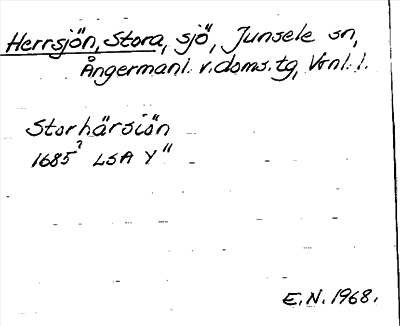 Herrsjön, Stora, sjö, Junsele sn,
Ångermanl. v. doms. tg, Vrnl. l.
Storhärsiön
1685? LSA Y"
E.N. 1968.